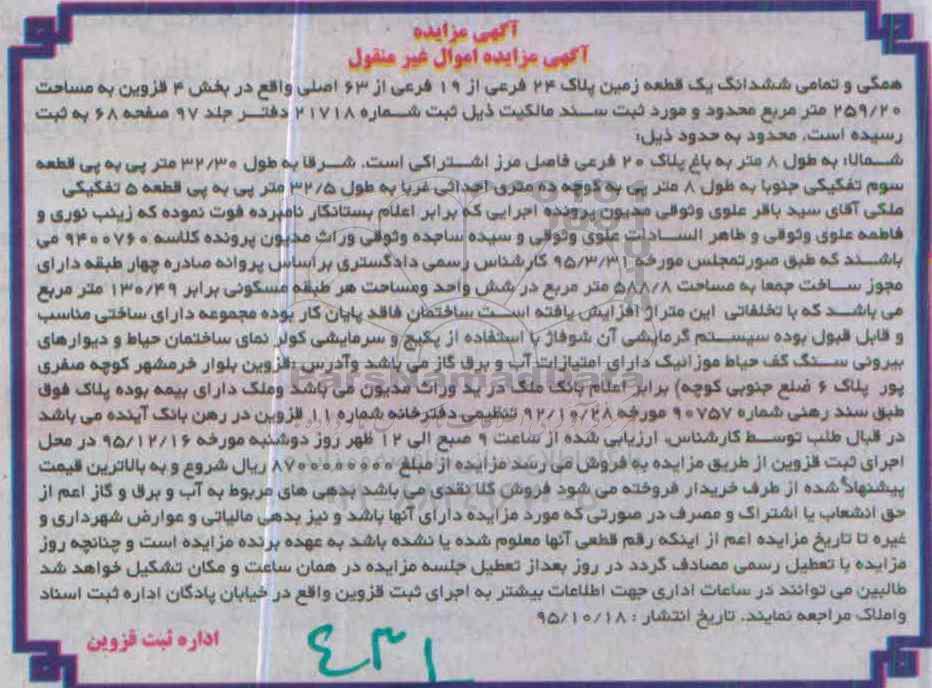 آگهی مزایده
آگهی مزایده اموال غیر منقول
همگی و تمامی ششدانگ یک قطعه زمین پلاک ۲۴ فرعی از ۱۹ فرعی از ۶۳ اصلی واقع در بخش ۴ قزوین به مساحت
۲۵۹/۲۰ متر مربع محدود و مورد ثبت سند مالکیت ذیل ثبت شماره ۲۱۷۱۸ دفتر جلد ۹۷ صفحه ۶۸ به ثبت
رسیده است. محدود به حدود ذیل:
شمالا: به طول ۸ متر به باغ پلاک ۲۰ فرعی فاصل مرز اشتراکی است. شرقا به طول ۳۲/۳۰ متر پی به پی قطعه
سوم تفکیکی جنوبا به طول ۸ متر پی به کوچه ده متری احداثی غربا به طول ۳۲/۵ متر پی به پی قطعه ۵ تفکیکی
ملکی آقای سید باقر علوی وثوقی مدیون پرونده اجرایی که برابر اعلام بستانکار نامبرده فوت نموده که زینب نوری و
فاطمه علوی وثوقی و طاهر السادات علوی وثوقی و سیده ساجده وثوقی وراث مدیون پرونده کلاسه ۹۴۰۰۷۶۰ می
باشند که طبق صورتمجلس مورخه ۹۵/۳/۳۱ کارشناس رسمی دادگستری براساس پروانه صادره چهار طبقه دارای
مجوز ساخت جمعا به مساحت ۵۸۸/۸ متر مربع در شش واحد ومساحت هر طبقه مسکونی برابر ۱۳۰/۴۹ متر مربع
می باشد که با تخلفاتی این متراژ افزایش یافته است ساختمان فاقد پایان کار بوده مجموعه دارای ساختی مناسب
و قابل قبول بوده سیستم گرمایشی آن شوفاژ با استفاده از پکیج و سرمایشی کولر نمای ساختمان حیاط و دیوارهای
بیرونی سنگ کف حیاط موزائیک دارای امتیازات آب و برق گاز می باشد وآدرس :قزوین بلوار خرمشهر کوچه صفری
پور پلاک ۶ ضلع جنوبی کوچه) برابر اعلام بانک ملک در ید وراث مدیون می باشد وملک دارای بیمه بوده پلاک فوق
طبق سند رهنی شماره ۹۰۷۵۷ مورخه ۹۲/۱۰/۲۸ تنظیمی دفترخانه شماره ۱۱ قزوین در رهن بانک آینده می باشد
در قبال طلب توسط کارشناس، ارزیابی شده از ساعت ۹ صبح الی ۱۲ ظهر روز دوشنبه مورخه ۹۵/۱۲/۱۶ در محل
اجرای ثبت قزوین از طریق مزایده به فروش می رسد مزایده از مبلغ ۸۷۰۰۰۰۰۰۰۰۰ ریال شروع و به بالاترین قیمت
پیشنهاد شده از طرف خریدار فروخته می شود فروش کلا نقدی می باشد بدهی های مربوط به آب و برق و گاز اعم از
حق انشعاب یا اشتراک و مصرف در صورتی که مورد مزایده دارای آنها باشد و نیز بدهی مالیاتی و عوارض شهرداری و
غیره تا تاریخ مزایده اعم از اینکه رقم قطعی آنها معلوم شده یا نشده باشد به عهده برنده مزایده است و چنانچه روز
مزایده با تعطیل رسمی مصادف گردد در روز بعداز تعطیل جلسه مزایده در همان ساعت و مکان تشکیل خواهد شد
طالبین می توانند در ساعات اداری جهت اطلاعات بیشتر به اجرای ثبت قزوین واقع در خیابان پادگان اداره ثبت اسناد
واملاک مراجعه نمایند. تاریخ انتشار : ۹۵/۱۰/۱۸
اداره ثبت قزوین